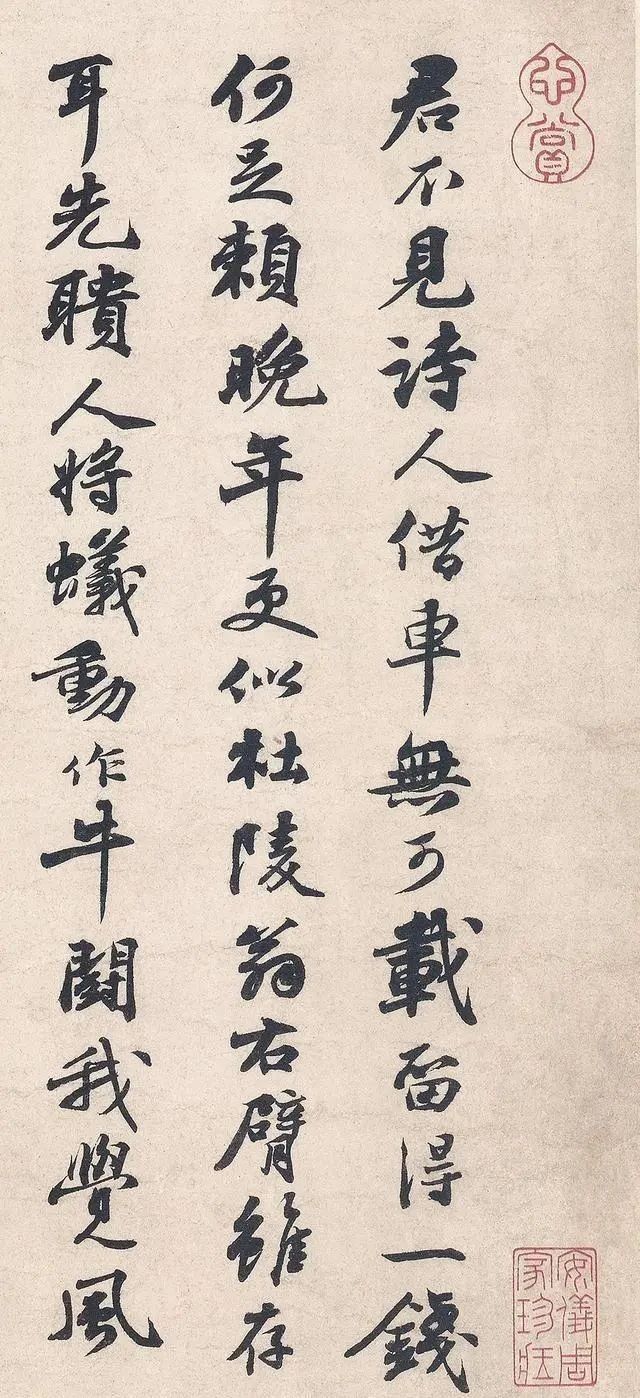 心賞
君不見詩人借車無可載留得一錢
何足賴晚年更似杜陵翁右臂雖存
耳先聵人將蟻動作牛鬪我覺風
安儀周
家珍藏